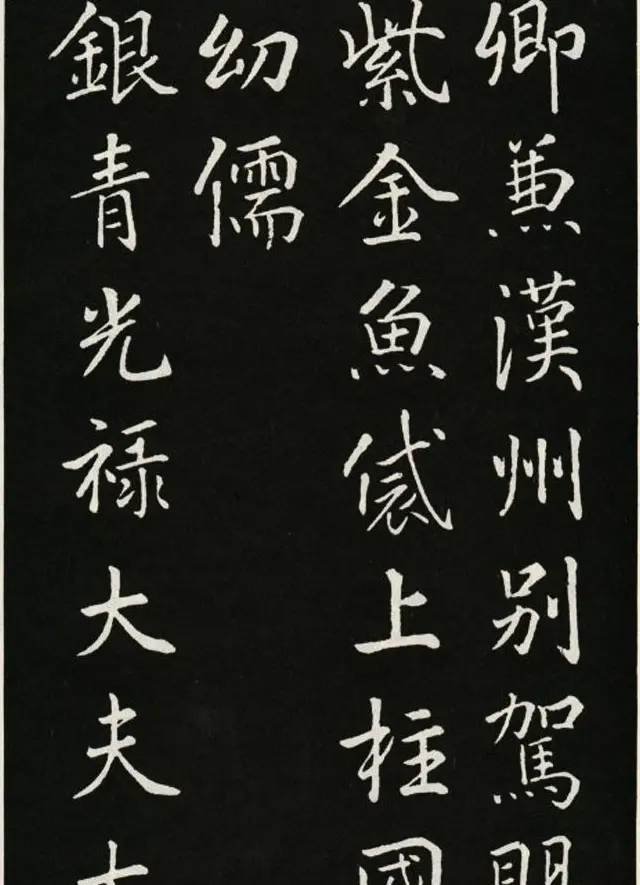 卿兼漢州别駕
紫金魚袋上柱國
幼儒
銀青光禄大夫